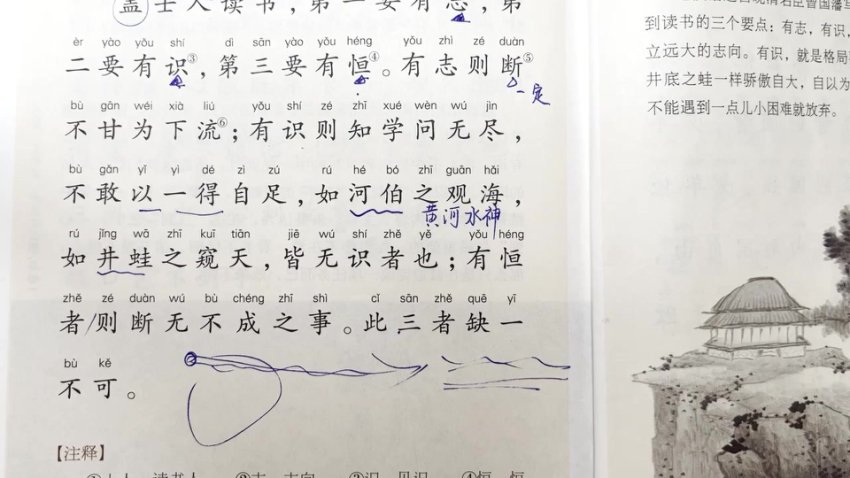 盖士人读书，第一要有志，第
èr yào yǒu shí dì sān yào yǒu héng yǒu zhì zé duàn
二要有识③，第三要有恒④。有志则断⑤
一定
bù gān wéi xià liú yǒu shí zé zhī xué wèn wú jìn
不甘为下流⑥；有识则知学问无尽，
bù gǎn yǐ yì dé zì zú rú hé bó zhī guān hǎi
不敢以一得自足，如河伯之观海，
黄河水神
rú jǐng wā zhī kuī tiān jiē wú shí zhě yě yǒu héng
如井蛙之窥天，皆无识者也；有恒
zhě zé duàn wú bù chéng zhī shì cǐ sān zhě quē yī
者/则断无不成之事。此三者缺一
bù kě
不可。
【注释】
到读书的三个要点：有志，有识，
立远大的志向。有识，就是格局
井底之蛙一样骄傲自大，自以为
不能遇到一点儿小困难就放弃。